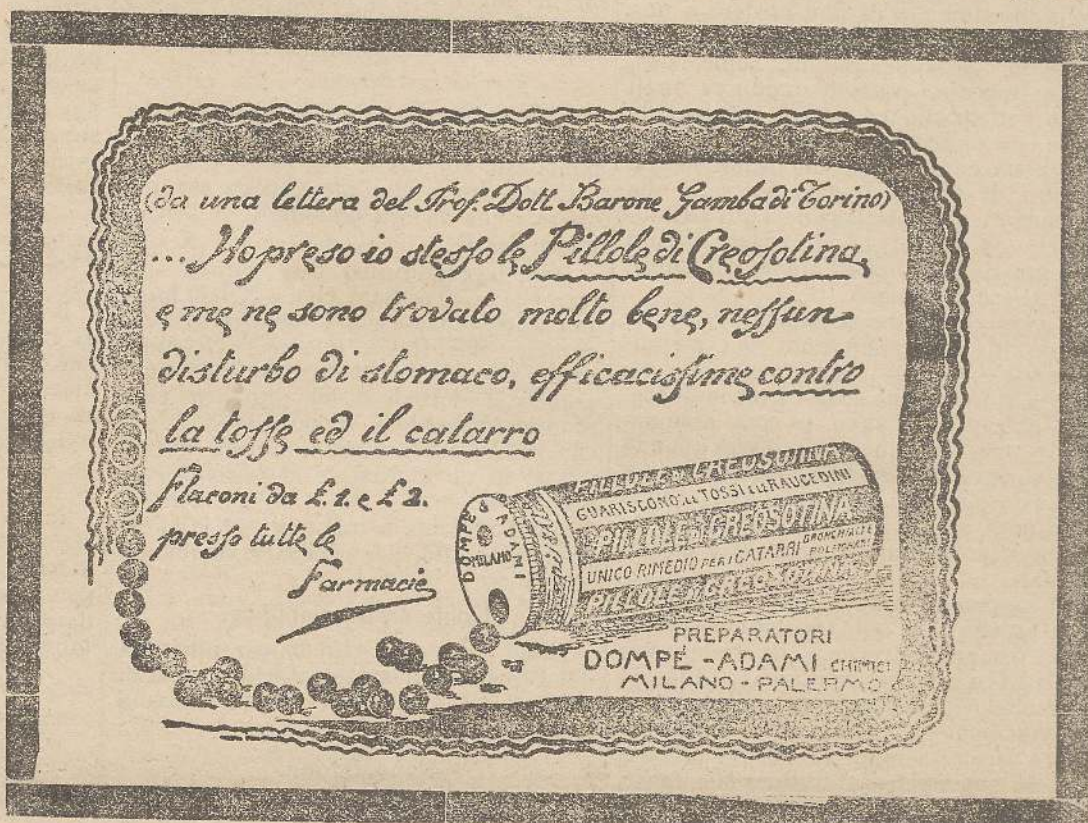 (da una lettera del Prof. Dott. Barone Gamba di Torino)
... Ho preso io stesso le Pillole di Creosotina,
e me ne sono trovato molto bene, nessun
disturbo di stomaco, efficacissime contro
la tosse ed il catarro
Flaconi da £. 1. e £ 2.
presso tutte le
Farmacie
DOMPÉ & ADAMI
MILANO
PILLOLE DI CREOSOTINA
GUARISCONO LE TOSSI E LE RAUCEDINI
PILLOLE DI CREOSOTINA
UNICO RIMEDIO PER I CATARRI BRONCHIALI
POLMONARI
PILLOLE DI CREOSOTINA
PREPARATORI
DOMPÉ - ADAMI CHIMICI
MILANO - PALERMO